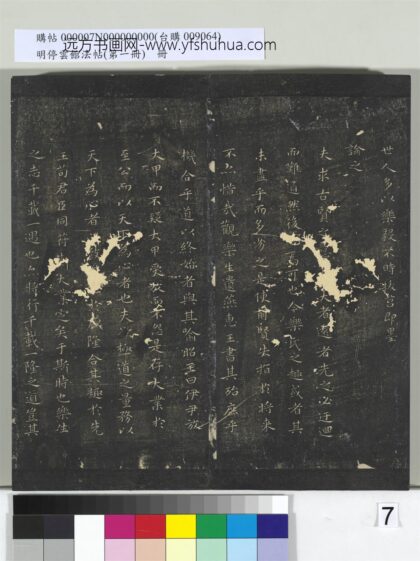 購帖 000007N000000000(台購 009064)
远方书画网-www.yfshuhua.com
明停雲館法帖(第一冊) 冊
世人多以樂毅不時拔莒即墨
論之
夫求古賢者遠者先之必迂迴
而難通然後已焉可也今樂氏之趣或者其
未盡乎而多劣之是使前賢失指於將來
不亦惜哉觀樂生遺燕惠王書其殆庶乎
機合乎道以終始者與其喻昭王曰伊尹放
大甲而不疑大甲受放而不怨是存大業於
至公而以天下為心者也夫欲極道之量務以
天下為心者隆合其趣於先
王苟君臣同符大業定矣于斯時也樂生
之志千載一遇也亦將行千載一隆之道豈其
7